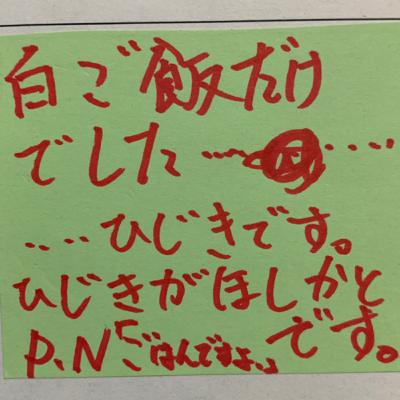 白ご飯だけ
でした……
……ひじきです。
ひじきがほしかと
です。
P.N「ごはんですよ。」